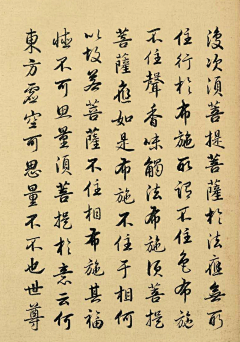 復次須菩提菩薩於法應無所
住行於布施所謂不住色布施
不住聲香味觸法布施須菩提
菩薩應如是布施不住于相何
以故若菩薩不住相布施其福
德不可思量須菩提於意云何
東方虛空可思量不不也世尊